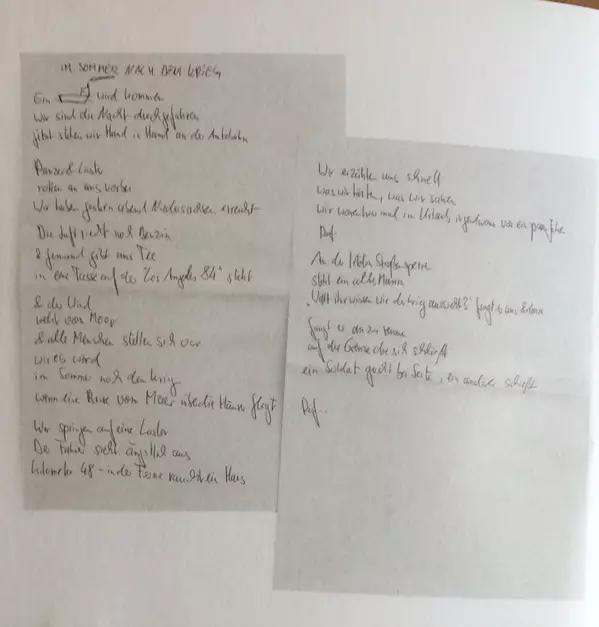 IM SOMMER NACH DEM KRIEG
Ein wird kommen
Wir sind die Nacht durchgefahren
jetzt stehen wir Hand in Hand an der Autobahn
Panzer & Laster
rollen an uns vorbei
Wir haben gestern abend Niedersachsen erreicht
Die Luft riecht nach Benzin
& jemand gibt uns Tee
in eine Tasse auf der "Los Angeles 84" steht
& der Wind
weht vom Meer
& alle Menschen stellen sich vor
wie es wird
im Sommer nach dem Krieg
wenn eine Brise vom Meer über die Häuser fliegt
Wir springen auf eine Laster
Der Fahrer sieht ängstlich aus
Kilometer 48 - in der Ferne raucht ein Haus
Wir erzählen uns schnell
was wir hörten, was wir sahen
wir waren hier mal in Urlaub irgendwann vor ein paar
Ref.
An der letzten Straßensperre
steht ein alter Mann
"Wollt ihr wissen wie der Krieg ausgeht?" fängt er
fängt er an zu
auf der Grenze
ein Soldat guckt bei Seite, ein anderer schießt
Ref.